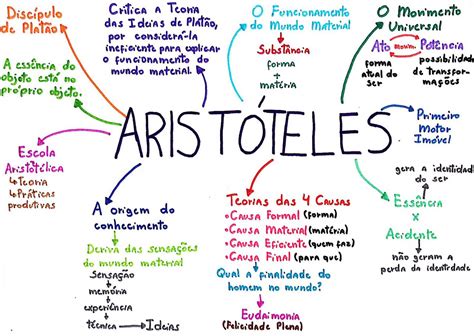 Discípulo
de Platão
Critica a Teoria
das Ideias de Platão,
por considerá-la
ineficiente para explicar
o funcionamento do
mundo material.
O Funcionamento
do Mundo Material
Substância
forma
+
matéria
O Movimento
Universal
Ato
Movim.
Potência
forma
atual do
ser
possibilidade
de transfor
mações
A essência do
objeto está no
próprio objeto.
ARISTÓTELES
Primeiro
Motor
Imóvel
Escola
Aristotélica
↳ Teoria
↳ Práticas
produtivas
A origem do
conhecimento
Deriva das sensações
do mundo material
Sensação
↓
memória
↓
experiência
↓
técnica → Ideias
Teorias das 4 Causas
• Causa Formal (forma)
• Causa Material (matéria)
• Causa Eficiente (quem faz)
• Causa Final (para que)
Qual a finalidade do
homem no mundo?
Eudaimonia
(Felicidade Plena)
gera a identidade
do ser
Essência
x
Acidente
não geram a
perda da identidade